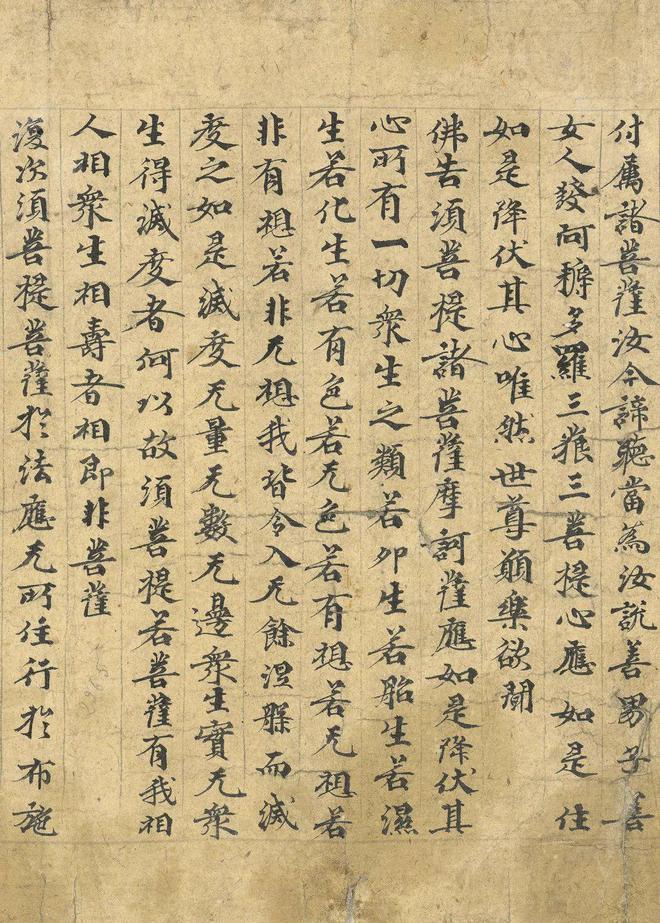 付属諸菩薩汝今諦聽當為汝説善男子善
女人發阿耨多羅三藐三菩提心應如是住
如是降伏其心唯然世尊願樂欲聞
佛告須菩提諸菩薩摩訶薩應如是降伏其
心所有一切衆生之類若卵生若胎生若濕
生若化生若有色若无色若有想若无想若
非有想若非无想我皆令入无餘涅槃而滅
度之如是滅度无量无數无邊衆生實无衆
生得滅度者何以故須菩提若菩薩有我相
人相衆生相壽者相即非菩薩
復次須菩提菩薩於法應无所住行於布施